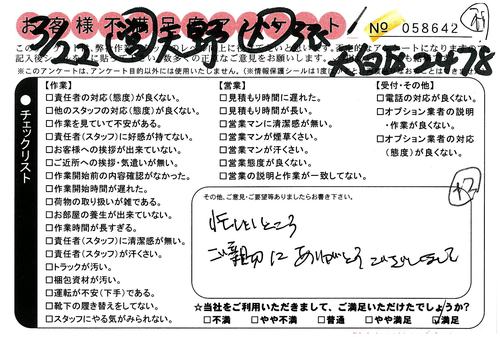 お客様不満足度アンケート
No 058642
3/22
※このアンケートは、アンケート目的以外には使用いたしません。
チェックリスト
【作業】
□責任者の対応（態度）が良くない。
□他のスタッフの対応（態度）が良くない。
□作業を見ていて不安がある。
□責任者（スタッフ）に好感が持てない。
□お客様への挨拶が出来ていない。
□ご近所への挨拶・気遣いが無い。
□作業開始前の内容確認がなかった。
□作業開始時間が遅れた。
□荷物の取り扱いが雑である。
□お部屋の養生が出来ていない。
□作業時間が長すぎる。
□責任者（スタッフ）に清潔感が無い。
□責任者（スタッフ）が汗くさい。
□トラックが汚い。
□梱包資材が汚い。
□運転が不安（下手）である。
□靴下の履き替えをしてない。
□スタッフにやる気がみられない。
【営業】
□見積もり時間に遅れた。
□見積もり時間が長い。
□営業マンに清潔感が無い。
□営業マンが煙草くさい。
□営業マンが汗くさい。
□営業態度が良くない。
□営業の説明と作業が一致してない。
【受付・その他】
□電話の対応が良くない。
□オプション業者の説明
・作業が良くない。
□オプション業者の対応
（態度）が良くない。
その他、ご意見・ご要望等ありましたらお書き下さい。
忙しいところ
ご親切に ありがとう ございました
☆当社をご利用いただきまして、ご満足いただけたでしょうか？
□不満 □やや不満 □普通 □やや満足 ☑満足